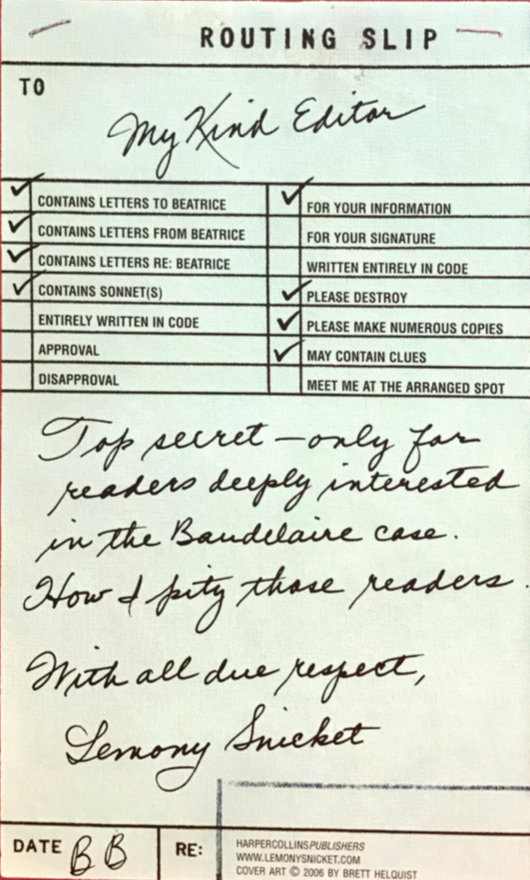 ROUTING SLIP
TO
My Kind Editor
✓ CONTAINS LETTERS TO BEATRICE
✓ CONTAINS LETTERS FROM BEATRICE
✓ CONTAINS LETTERS RE: BEATRICE
✓ CONTAINS SONNET(S)
ENTIRELY WRITTEN IN CODE
APPROVAL
DISAPPROVAL
✓ FOR YOUR INFORMATION
FOR YOUR SIGNATURE
WRITTEN ENTIRELY IN CODE
✓ PLEASE DESTROY
✓ PLEASE MAKE NUMEROUS COPIES
✓ MAY CONTAIN CLUES
MEET ME AT THE ARRANGED SPOT
Top secret – only for
readers deeply interested
in the Baudelaire case.
How I pity those readers.
With all due respect,
Lemony Snicket
DATE BB
RE:
HARPERCOLLINSPUBLISHERS
WWW.LEMONYSNICKET.COM
COVER ART © 2006 BY BRETT HELQUIST